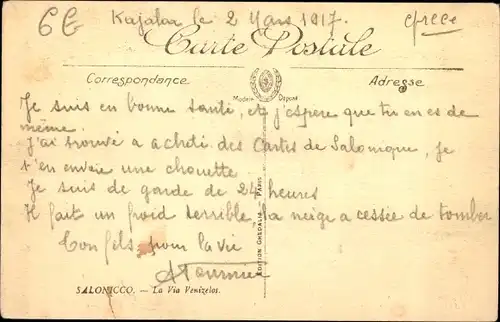 6E Kajalar le 2 Mars 1917. Grece
Carte Postale
Correspondance Adresse
Modèle Déposé
Je suis en bonne santé, et j'espere que tu en es de
même.
J'ai trouvé a acheti des Cartes de Salonique, je
t'en envoie une chouette
Je suis de garde de 24 heures
Il fait un froid terrible, la neige a cessée de tomber
Ton fils pour la vie
A Tournier
EDITION GHEDALIA PARIS
SALONICCO. — La Via Venizelos.